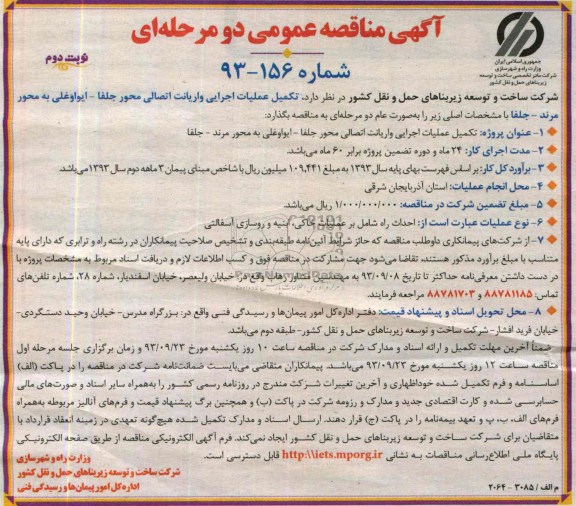 آگهی مناقصه عمومی دو مرحله‌ای
نوبت دوم
شماره ۱۵۶-۹۳
جمهوری اسلامی ایران
وزارت راه و شهرسازی
شرکت مادر تخصصی ساخت و توسعه
زیربناهای حمل و نقل کشور
شرکت ساخت و توسعه زیربناهای حمل و نقل کشور در نظر دارد، تکمیل عملیات اجرایی واریانت اتصالی محور جلفا - ایواوغلی به محور
مرند - جلفا با مشخصات اصلی زیر را به‌صورت عام دو مرحله‌ای به مناقصه بگذارد:
۱- عنوان پروژه: تکمیل عملیات اجرایی واریانت اتصالی محور جلفا - ایواوغلی به محور مرند - جلفا
۲- مدت اجرای کار: ۲۴ ماه و دوره تضمین پروژه برابر ۶۰ ماه می‌باشد.
۳- برآورد کل کار: بر اساس فهرست بهای پایه سال ۱۳۹۳ به مبلغ ۱۰۹,۴۴۱ میلیون ریال با شاخص مبنای پیمان ۳ ماهه دوم سال ۱۳۹۳می‌باشد.
۴- محل انجام عملیات: استان آذربایجان شرقی
۵- مبلغ تضمین شرکت در مناقصه: ۱/۰۰۰/۰۰۰/۰۰۰ ریال می‌باشد.
۶- نوع عملیات عبارت است از: احداث راه شامل بر عملیات خاکی، ابنیه و روسازی آسفالتی
۷- از شرکت‌های پیمانکاری داوطلب مناقصه که حائز شرایط آئین‌نامه طبقه‌بندی و تشخیص صلاحیت پیمانکاران در رشته راه و ترابری که دارای پایه
متناسب با مبلغ برآورد مذکور هستند، تقاضا می‌شود جهت مشارکت در مناقصه فوق و کسب اطلاعات لازم و دریافت اسناد مربوط به مشخصات پروژه با
در دست داشتن معرفی‌نامه حداکثر تا تاریخ ۹۳/۰۹/۰۸ به مهندسین مشاور رهاب واقع در: خیابان ولیعصر، خیابان اسفندیار، شماره ۲۸، شماره تلفن‌های
تماس: ۸۸۷۸۱۱۸۵ و ۸۸۷۸۱۷۰۳ مراجعه فرمایند.
۸- محل تحویل اسناد و پیشنهاد قیمت: دفتر اداره‌کل امور پیمان‌ها و رسیدگی فنی واقع در: بزرگراه مدرس- خیابان وحید دستگردی-
خیابان فرید افشار- شرکت ساخت و توسعه زیربناهای حمل و نقل کشور- طبقه دوم می‌باشد.
ضمناً آخرین مهلت تکمیل و ارائه اسناد و مدارک شرکت در مناقصه ساعت ۱۰ روز یکشنبه مورخ ۹۳/۰۹/۲۳ و زمان برگزاری جلسه مرحله اول
مناقصه ساعت ۱۲ روز یکشنبه مورخ ۹۳/۰۹/۲۳ می‌باشد. پیمانکاران متقاضی می‌بایست ضمانت‌نامه شرکت در مناقصه را در پاکت (الف)
اساسنامه و فرم تکمیل شده خوداظهاری و آخرین تغییرات شرکت مندرج در روزنامه رسمی کشور را به‌همراه سایر اسناد و صورت‌های مالی
حسابرسی شده و کارت اقتصادی جدید و مدارک و رزومه شرکت در پاکت (ب) و همچنین برگ پیشنهاد قیمت و فرم‌های آنالیز مربوطه به‌همراه
فرم‌های الف، ب، پ و تعهد بیمه‌نامه را در پاکت (ج) قرار دهند. ارسال اسناد و مدارک تکمیل شده هیچ‌گونه تعهدی در زمینه انعقاد قرارداد با
متقاضیان برای شرکت ساخت و توسعه زیربناهای حمل و نقل کشور ایجاد نمی‌کند. فرم آگهی الکترونیکی مناقصه از طریق صفحه الکترونیکی
پایگاه ملی اطلاع‌رسانی مناقصات به نشانی http://iets.mporg.ir قابل دسترسی است.
وزارت راه و شهرسازی
شرکت ساخت و توسعه زیربناهای حمل و نقل کشور
اداره کل امور پیمان‌ها و رسیدگی فنی
م الف / ۳۰۸۵ - ۲۰۶۴